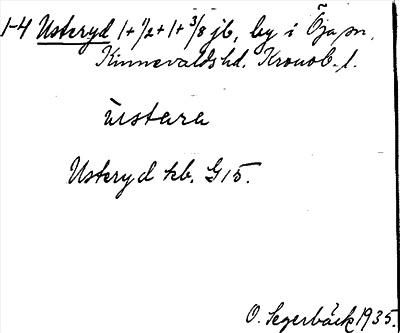 1-4 Usteryd 1+1/2+1+3/8 jb, by i Öja sn,
Kinnevalds hd. Kronob. l.
ùstara
Usteryd tkb. G15.
O. Segerbäck 1935.